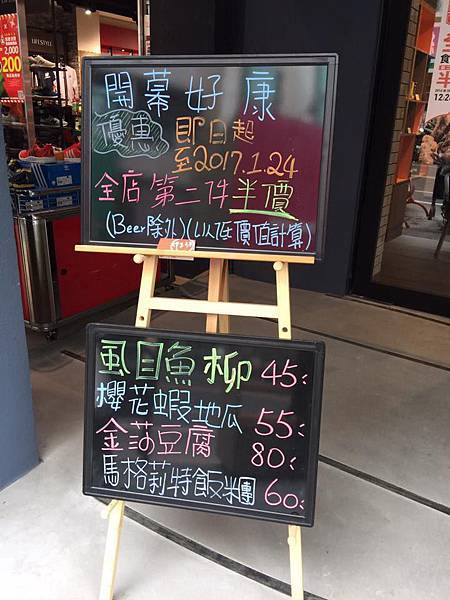 開幕好康
優惠
即日起
至2017.1.24
全店第二件半價
(Beer除外)(以低價值計算)
虱目魚柳 45
櫻花蝦地瓜 55
金莎豆腐 80
馬格莉特飯糰 60
LIFESTYLE
2,000
200